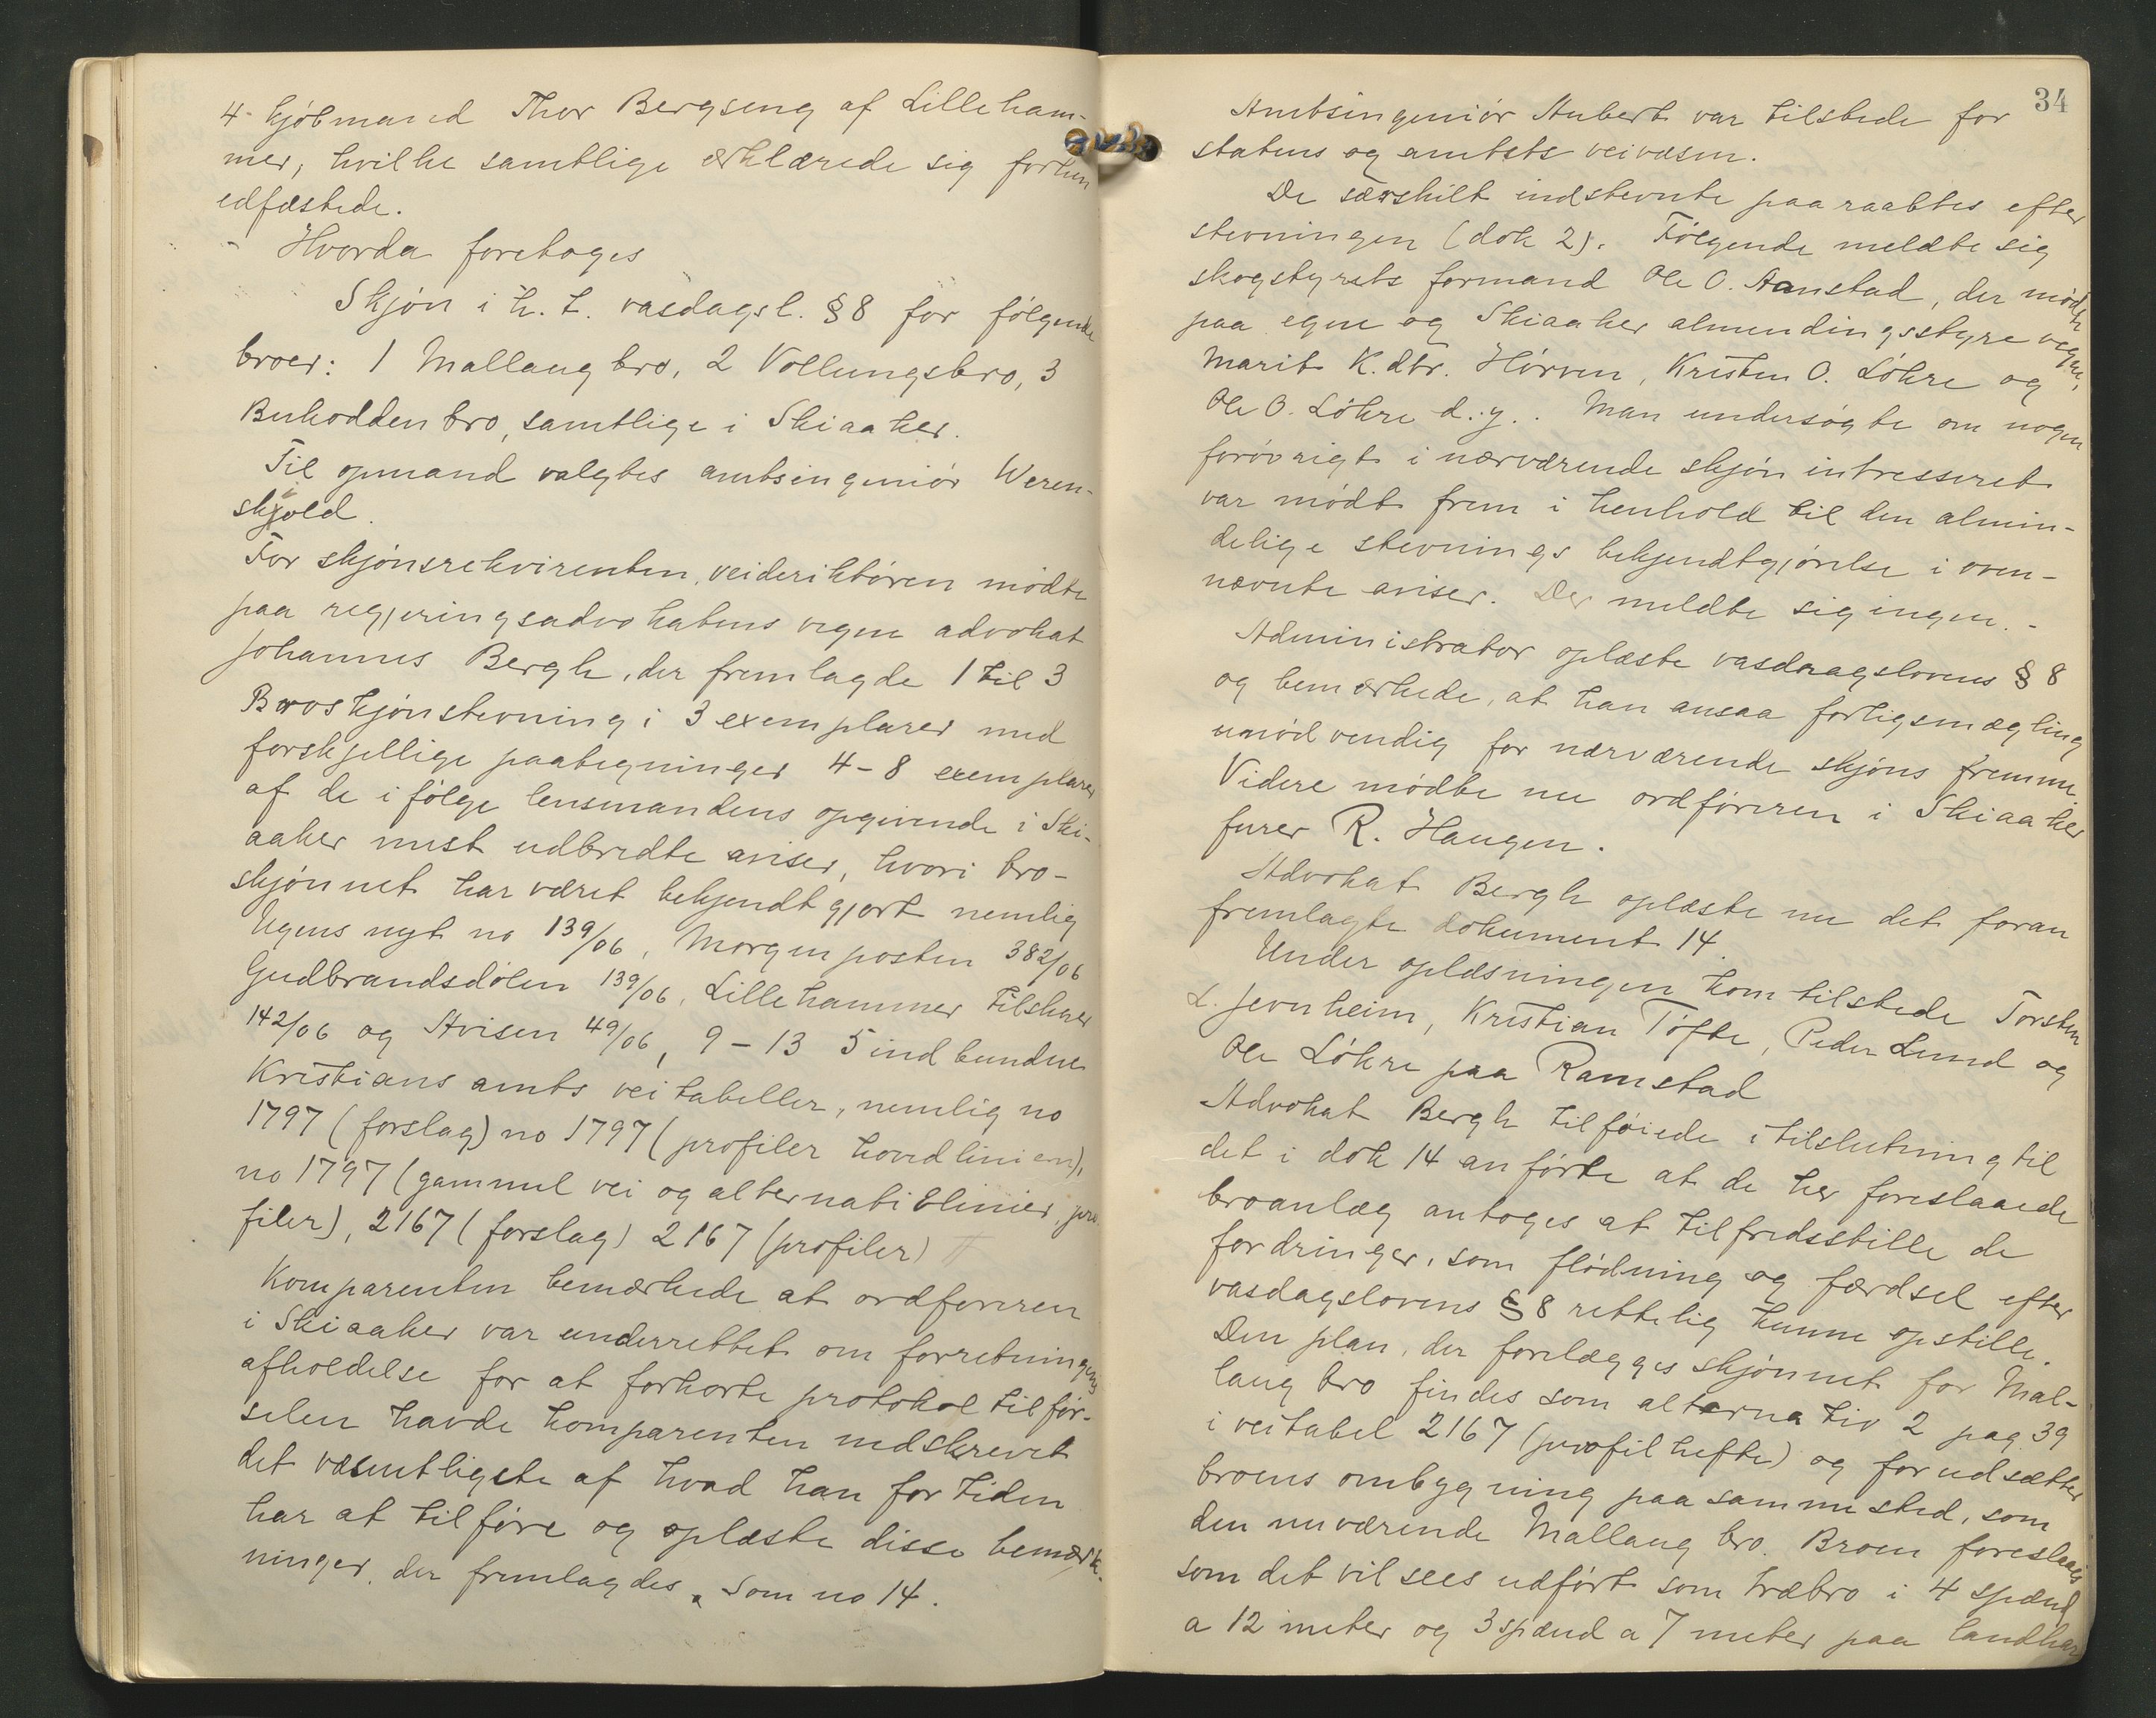 4. kjøbmand Thor Bergseng af Lilleham-
mer, hvilke samtlige erklærede sig forhen
edfæstede.
Hvorda foretoges
Skjøn i h. t. vasdagsl. § 8 for følgende
broer: 1 Mallaug bro, 2 Vollungsbro, 3
Buhodden bro, samtlige i Skiaaker.
Til opmand valgtes amtsingeniør Weren-
skjold.
For skjønsrekvirenten, veidirektøren mødte
paa regjeringsadvokatens vegne advokat
Johannes Bergh, der fremlagde 1 til 3
Broskjønstevning i 3 exemplarer med
forskjellige paategninger 4-8 exemplarer
af de ifølge lensmandens opgivende i Ski-
aaker mest udbredte aviser, hvori bro-
skjønnet har været bekjendtgjort nemlig
Ugens nyt no 139/06, Morgenposten 382/06
Gudbrandsdølen 139/06, Lillehammer Tilskuer
142/06 og Avisen 49/06, 9-13 5 indbundne
Kristians amts veitabeller, nemlig no
1797 (forslag) no 1797 (profiler hovedlinien),
no 1797 (gammel vei og alternativlinier, pro-
filer), 2167 (forslag) 2167 (profiler)
Komparenten bemærkede at ordføreren
i Skiaaker var underrettet om forretningens
afholdelse for at forkorte protokoltilfør-
selen havde komparenten nedskrevet
det væsentligste af hvad han for tiden
har at tilføre og oplæste disse bemærk-
ninger, der fremlagdes som no 14.
34
Amtsingeniør Aubert var tilstede for
statens og amtets veivæsen.
De særskilt indstevnte paaraabtes efter
stevningen (dok 2). Følgende meldte sig
skogstyrets formand Ole O. Aanstad, der mødte
paa egne og Skiaaker almendingsstyre vegne,
Marit K. dtr. Hørven, Kristen O. Løkre og
Ole O. Løkre d. y.. Man undersøgte om nogen
forøvrigt i nærværende skjøn intresseret
var mødt frem i henhold til den almin-
delige stevnings bekjendtgjørelse i oven-
nævnte aviser. Der meldte sig ingen. -
Administrator oplæste vasdragslovens § 8
og bemærkede, at han ansaa forligsmægling
unødvendig for nærværende skjøns fremme.
Videre mødte nu ordføreren i Skiaaker
furer R. Haugen.
Advokat Bergh oplæste nu det foran
fremlagte dokument 14.
Under oplæsningen kom tilstede Torsten
L. Jevnheim, Kristian Tøfte, Peder Lund og
Ole Løkre paa Ramstad
Advokat Bergh tilføiede i tilslutning til
det i dok 14 anførte at de her foreslaaede
broanlæg antoges at tilfredsstille de
fordringer, som flødning og færdsel efter
vasdagslovens § 8 rettelig kunne opstille.
Den plan, der forelægges skjønnet for Mal-
laug bro findes som alternativ 2 pag 39
i veitabel 2167 (profilhefte) og forudsætter
broens ombygning paa samme sted, som
den nuværende Mallaug bro. Broen foreslaaes
som det vil sees udført som træbro i 4 spænd
a 12 meter og 3 spænd a 7 meter paa landkar